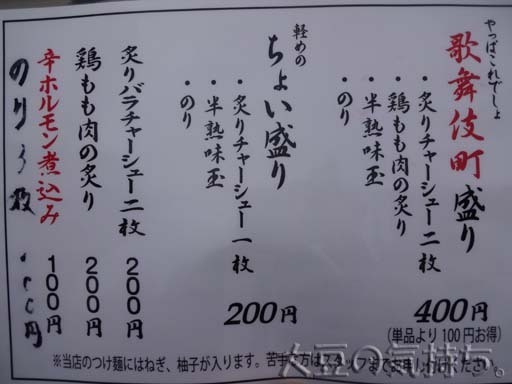 やっぱこれでしょ
歌舞伎町盛り
・炙りチャーシュー二枚
・鶏もも肉の炙り
・半熟味玉
・のり
400円
(単品より100円お得)
軽めの
ちょい盛り
・炙りチャーシュー一枚
・半熟味玉
・のり
200円
炙りバラチャーシュー二枚 200円
鶏もも肉の炙り 200円
辛ホルモン煮込み 100円
のり3枚 100円
※当店のつけ麺にはねぎ、柚子が入ります。苦手な方はスタッフまでお申し付けください。
大豆の気持ち。